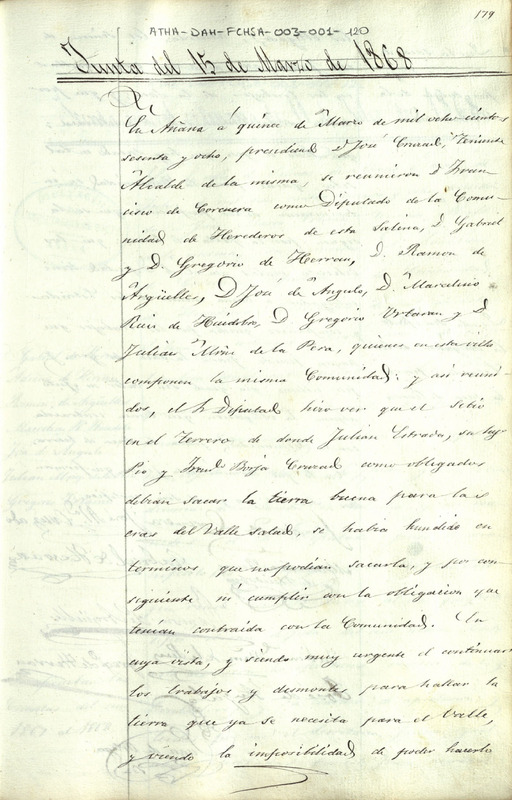 179
ATHA-DAH-FCHSA-003-001-120
Junta del 15 de Marzo de 1868
En Añana á quince de Marzo de mil ocho cientos
sesenta y ocho, presidiend D José Cruzad, Teniente
Alcalde de la misma, se reunieron D Fran-
cisco de Corcuera como Diputado de la Comu-
nidad de Herederos de esta Salina, D Gabriel
y D. Gregorio de Herran, D. Ramon de
Argüelles, D José de Angulo, D. Marcelino
Ruiz de Huidobro, D Gregorio Urtaran y D
Julian de la Pera, quienes en esta villa
componen la misma Comunidad: y asi reuni-
dos, el Sr Diputad hizo ver que el sitio
en el Terrero de donde Julian Estrada, su hijo
Pio y Franco Borja Cruzad como obligados
debian sacar la tierra buena para las
eras del Valle salad, se habia hundido en
terminos que no podian sacarla, y por con-
siguiente ni cumplir con la obligacion que
tenian contraida con la Comunidad. En
cuya vista, y siendo muy urgente el continuar
los trabajos y desmontes para hallar la
tierra que ya se necesita para el Valle,
y viendo la imposibilidad de poder hacerlo